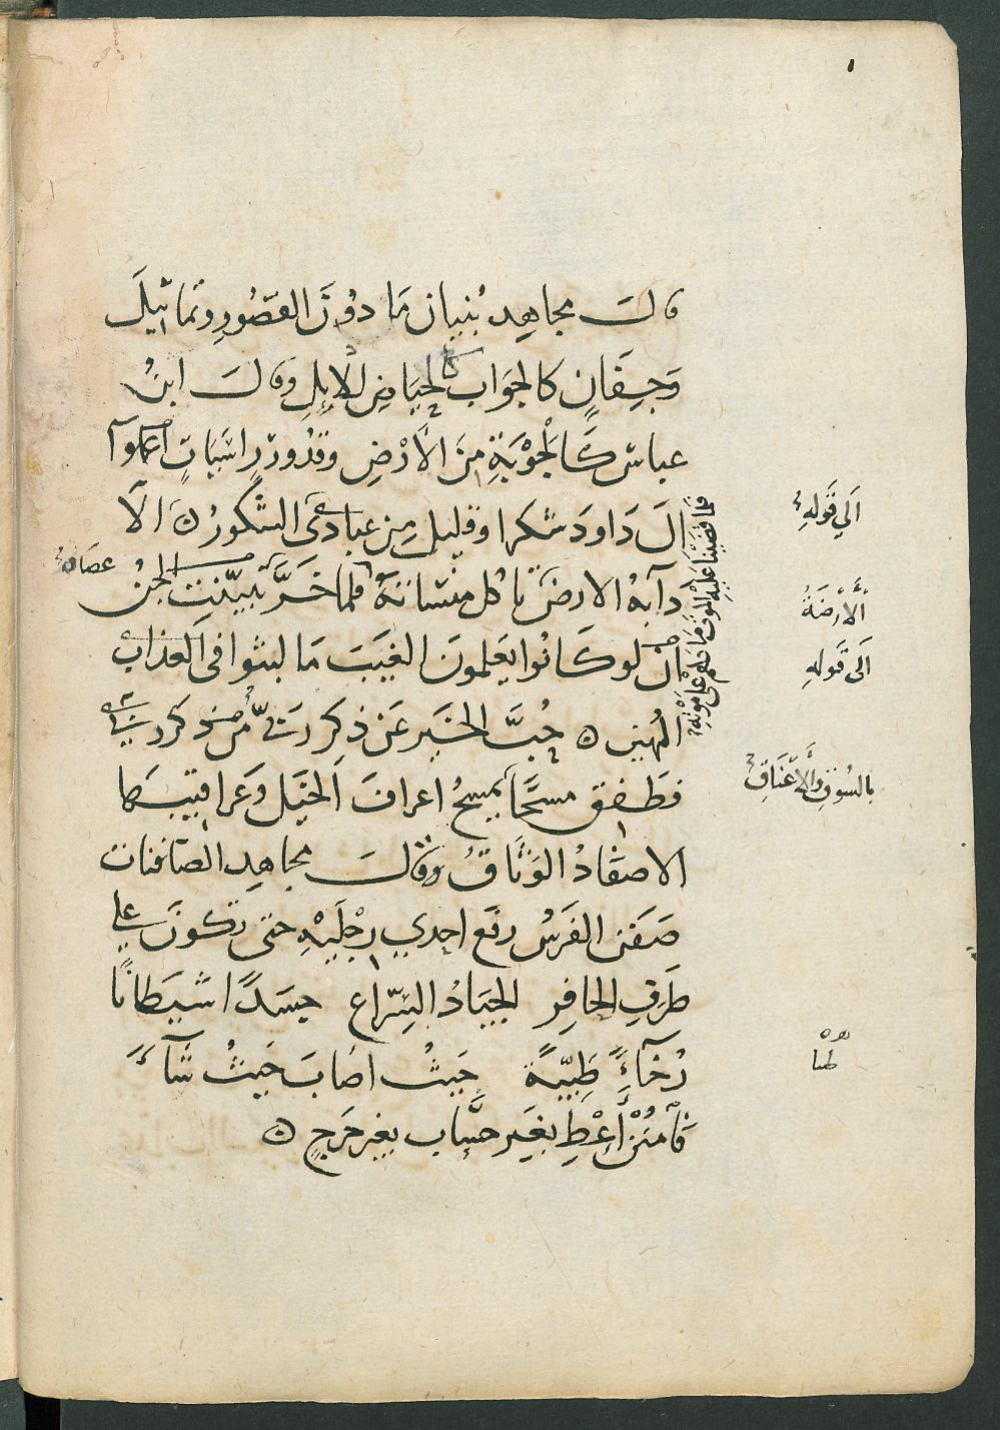 قالَ مجاهِد بُنيان مَا دوُنَ القصُورِ وتماثيلَ
وَجِفَانٍ كالجوَاب كالحِيَاضِ للإبِلِ وقالَ ابنُ
عباس كَالجَوْبَةِ مِنَ الأَرْضِ وقدُورٍ رَاسَيَاتٍ اعملوآ
الَ دَاودَ شكرا وقليل مِن عباديَ الشكورُ ه الّا
دآبةُ الارضِ تاكل منسَاتهُ فلما خَرَّ تبيّنتِ الجنُ
أن لو كَانوا يَعلمونَ الغيَبَ مَا لبثوا في العذاب
المهين ه حُبَّ الخيَر عَن ذكِر ربّي من ذكر ربي
فطَفق مسحًا يمسحُ اعرافَ الخيَل وَعَراقيبَها
الاصفَادُ الوَثاقُ وقالَ مجاهِد الصّافنات
صَفَنَ الفَرسُ رفَع احِدي رِجْلَيْهِ حتى تكونَ علي
طَرَفِ الحافِر الجيَادُ السِّرَاع جسَدًا شيَطانًا
رُخآءً طَيِّبةً حَيثُ اصَابَ حَيثُ شآءَ
فَامنُنْ أَعْطِ بغَير حسَاب بغيرِ حَرَجٍ ه
الَي قَولِهِ
فلما قضَينا عَليهِ الموتَ ما دلهم علي مَوْته
عصَاه
الأَرَضَةُ
الَى قَولهِ
بالسُوقِ وَالأَعْنَاقِ
طيبا